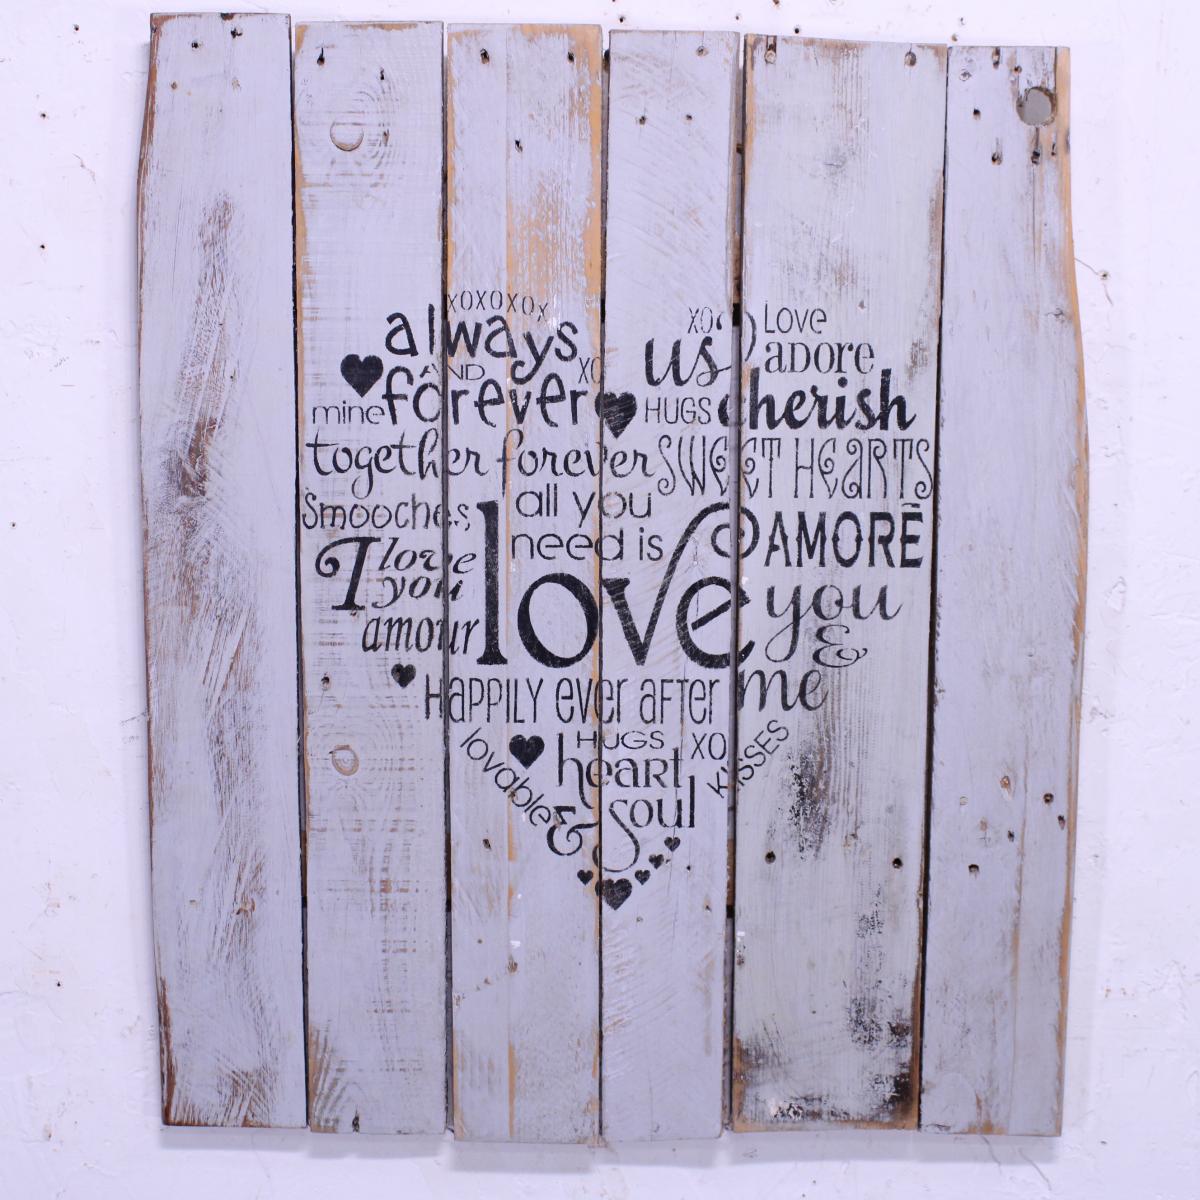 XOXOXOX
always
AND
XO
mine forever
together forever
Smooches
all you
need is
love
I love
you
amour
XO
us
LOVE
aDORe
HUGS cherish
SWEET HEARTS
AMORÉ
you
&
me
HAPPILY ever AFTer
lovable
HUGS XO
KISSES
heaRt
& soul